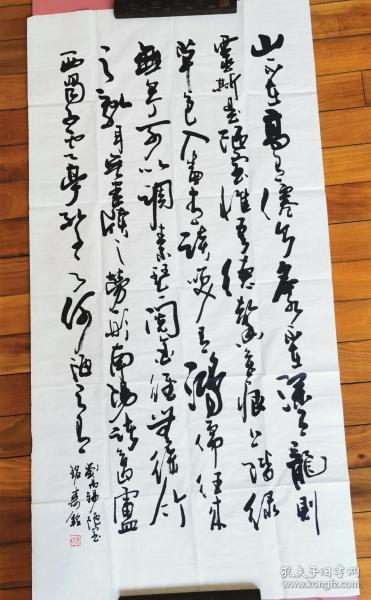 山不在高有仙则名水不在深有龙则
灵斯是陋室惟吾德馨苔痕上阶绿
草色入帘青谈笑有鸿儒往来
无白丁可以调素琴阅金经无丝竹
之乱耳无案牍之劳形南阳诸葛庐
西蜀子云亭孔子云何陋之有
刘禹锡陋室
铭
孔夫子旧书网